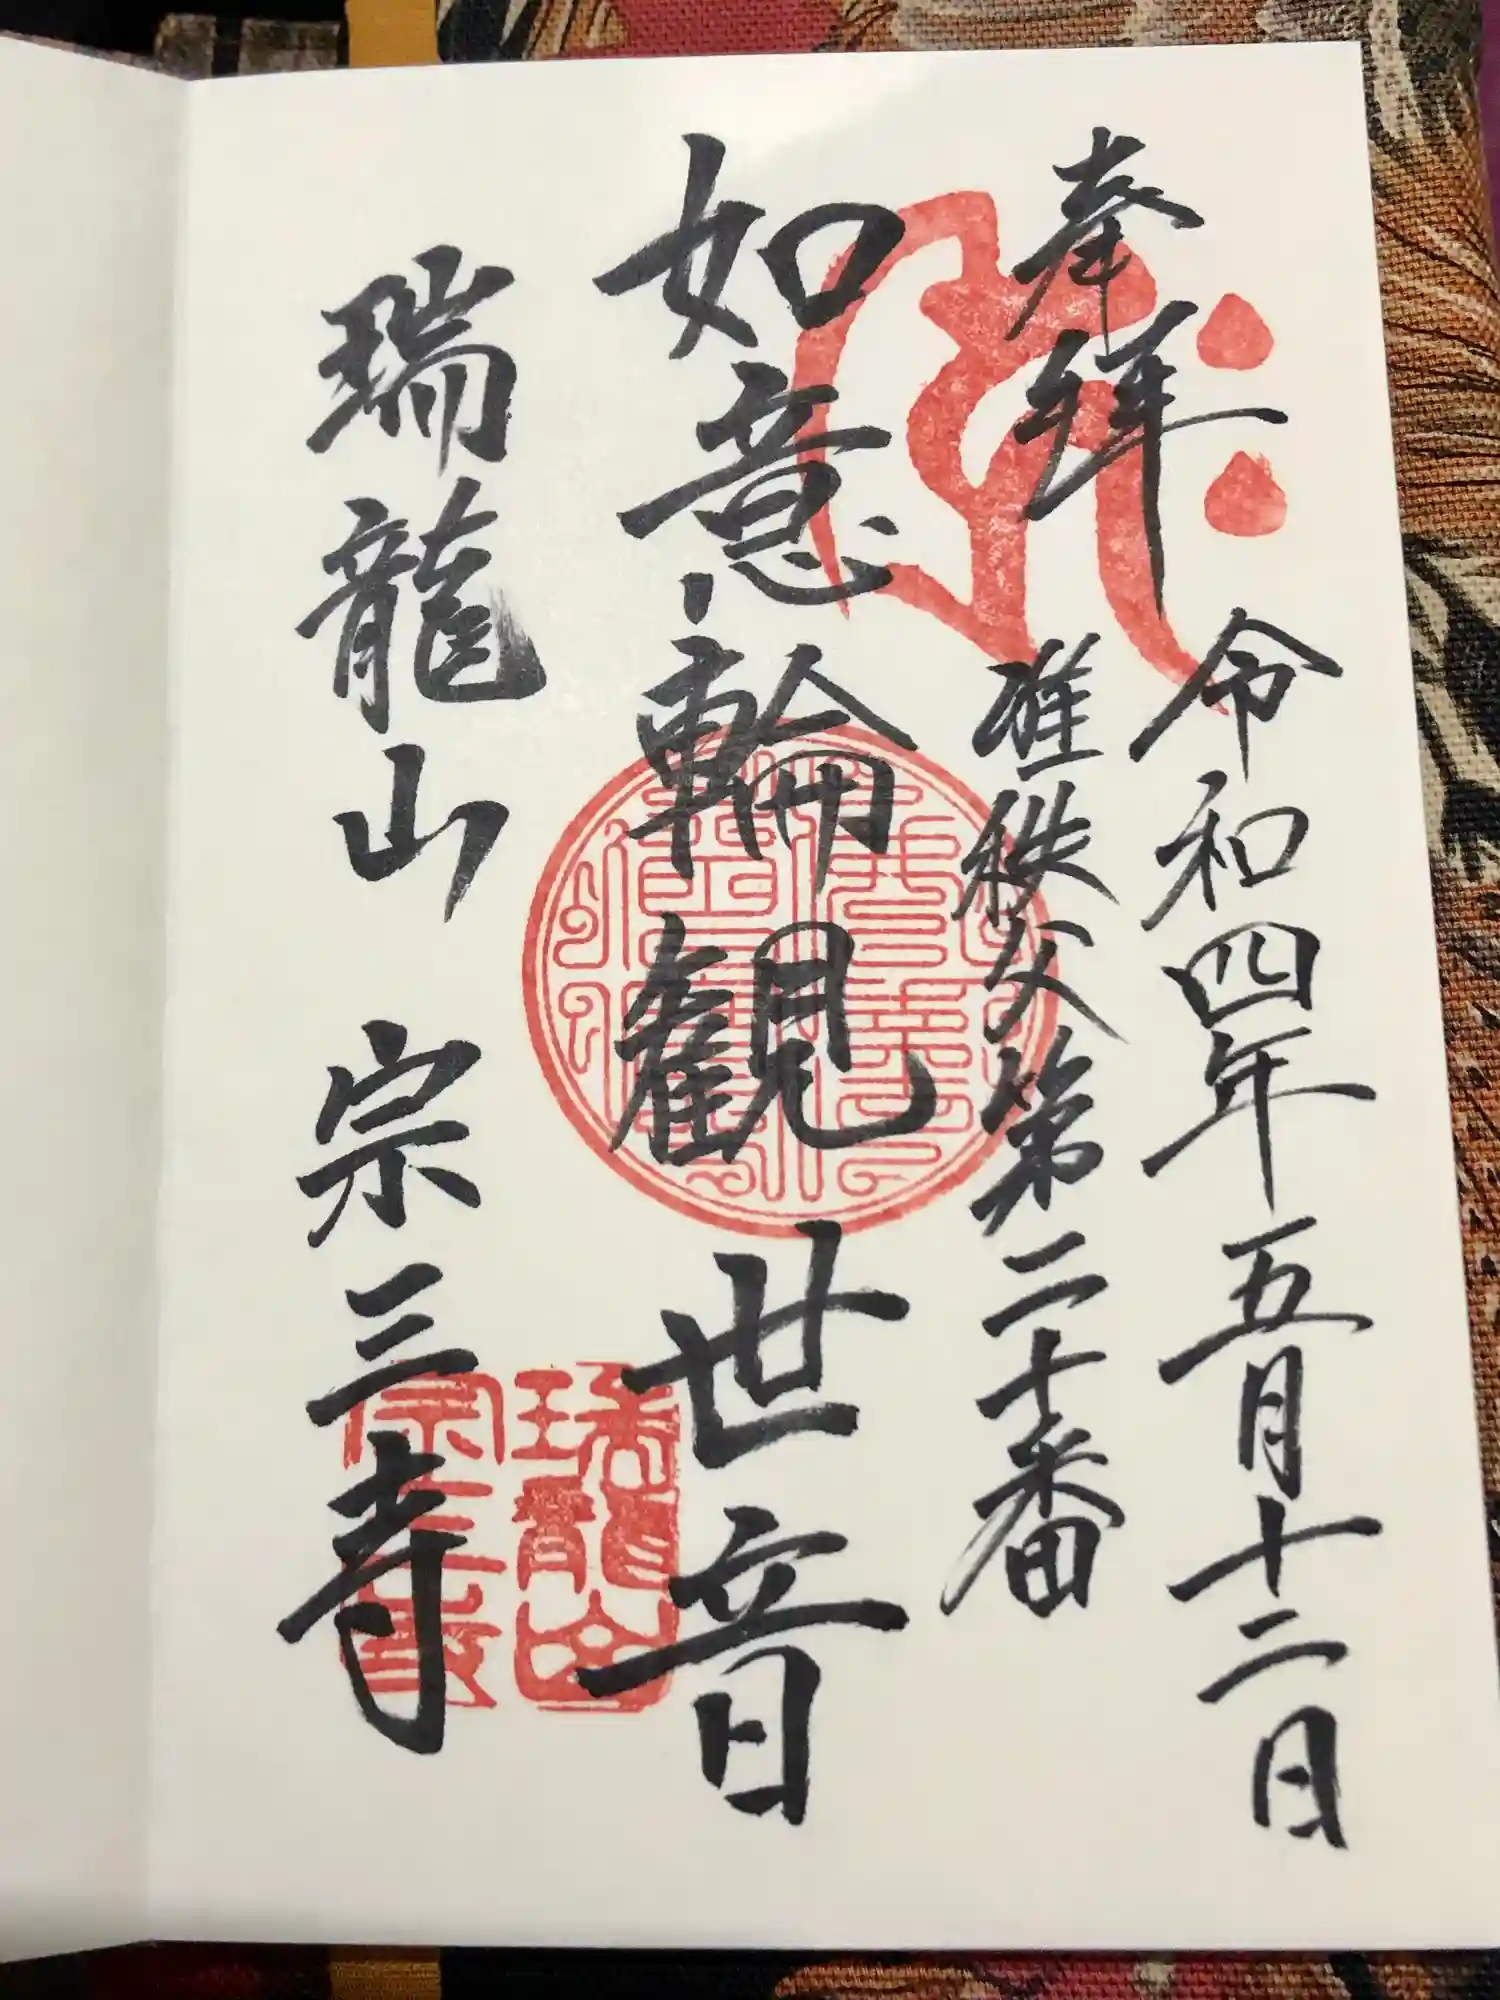 奉拝
令和四年五月十二日
准秩父第二十番
如意輪観世音
瑞龍山 宗三寺
瑞龍山